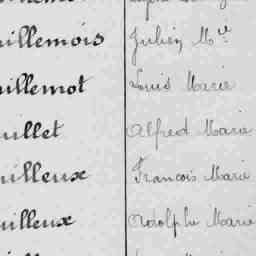 uillemois Julien M.ie
uillemot Louis Marie
uillet Alfred Marie
uilleux Francois Marie
uilleux Adolphe Marie